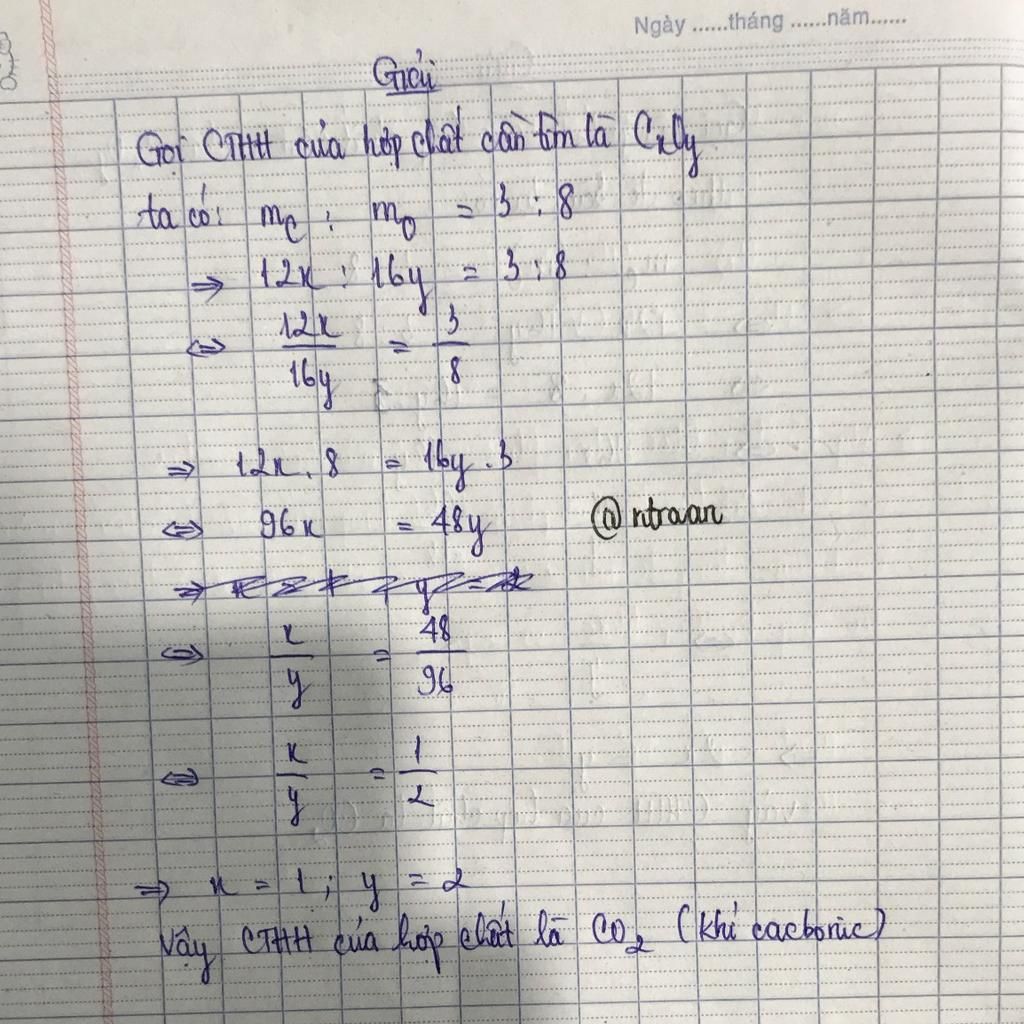 Ngày ......tháng ......năm......
Giải
Gọi CTHH của hợp chất cần tìm là CxOy
ta có: mC : mO = 3 : 8
⇒ 12x : 16y = 3 : 8
⇔ 12x/16y = 3/8
⇒ 12x . 8 = 16y . 3
⇔ 96x = 48y
@ntraan
⇔ x/y = 48/96
⇔ x/y = 1/2
⇒ x = 1 ; y = 2
Vậy CTHH của hợp chất là CO₂ (khí cacbonic)